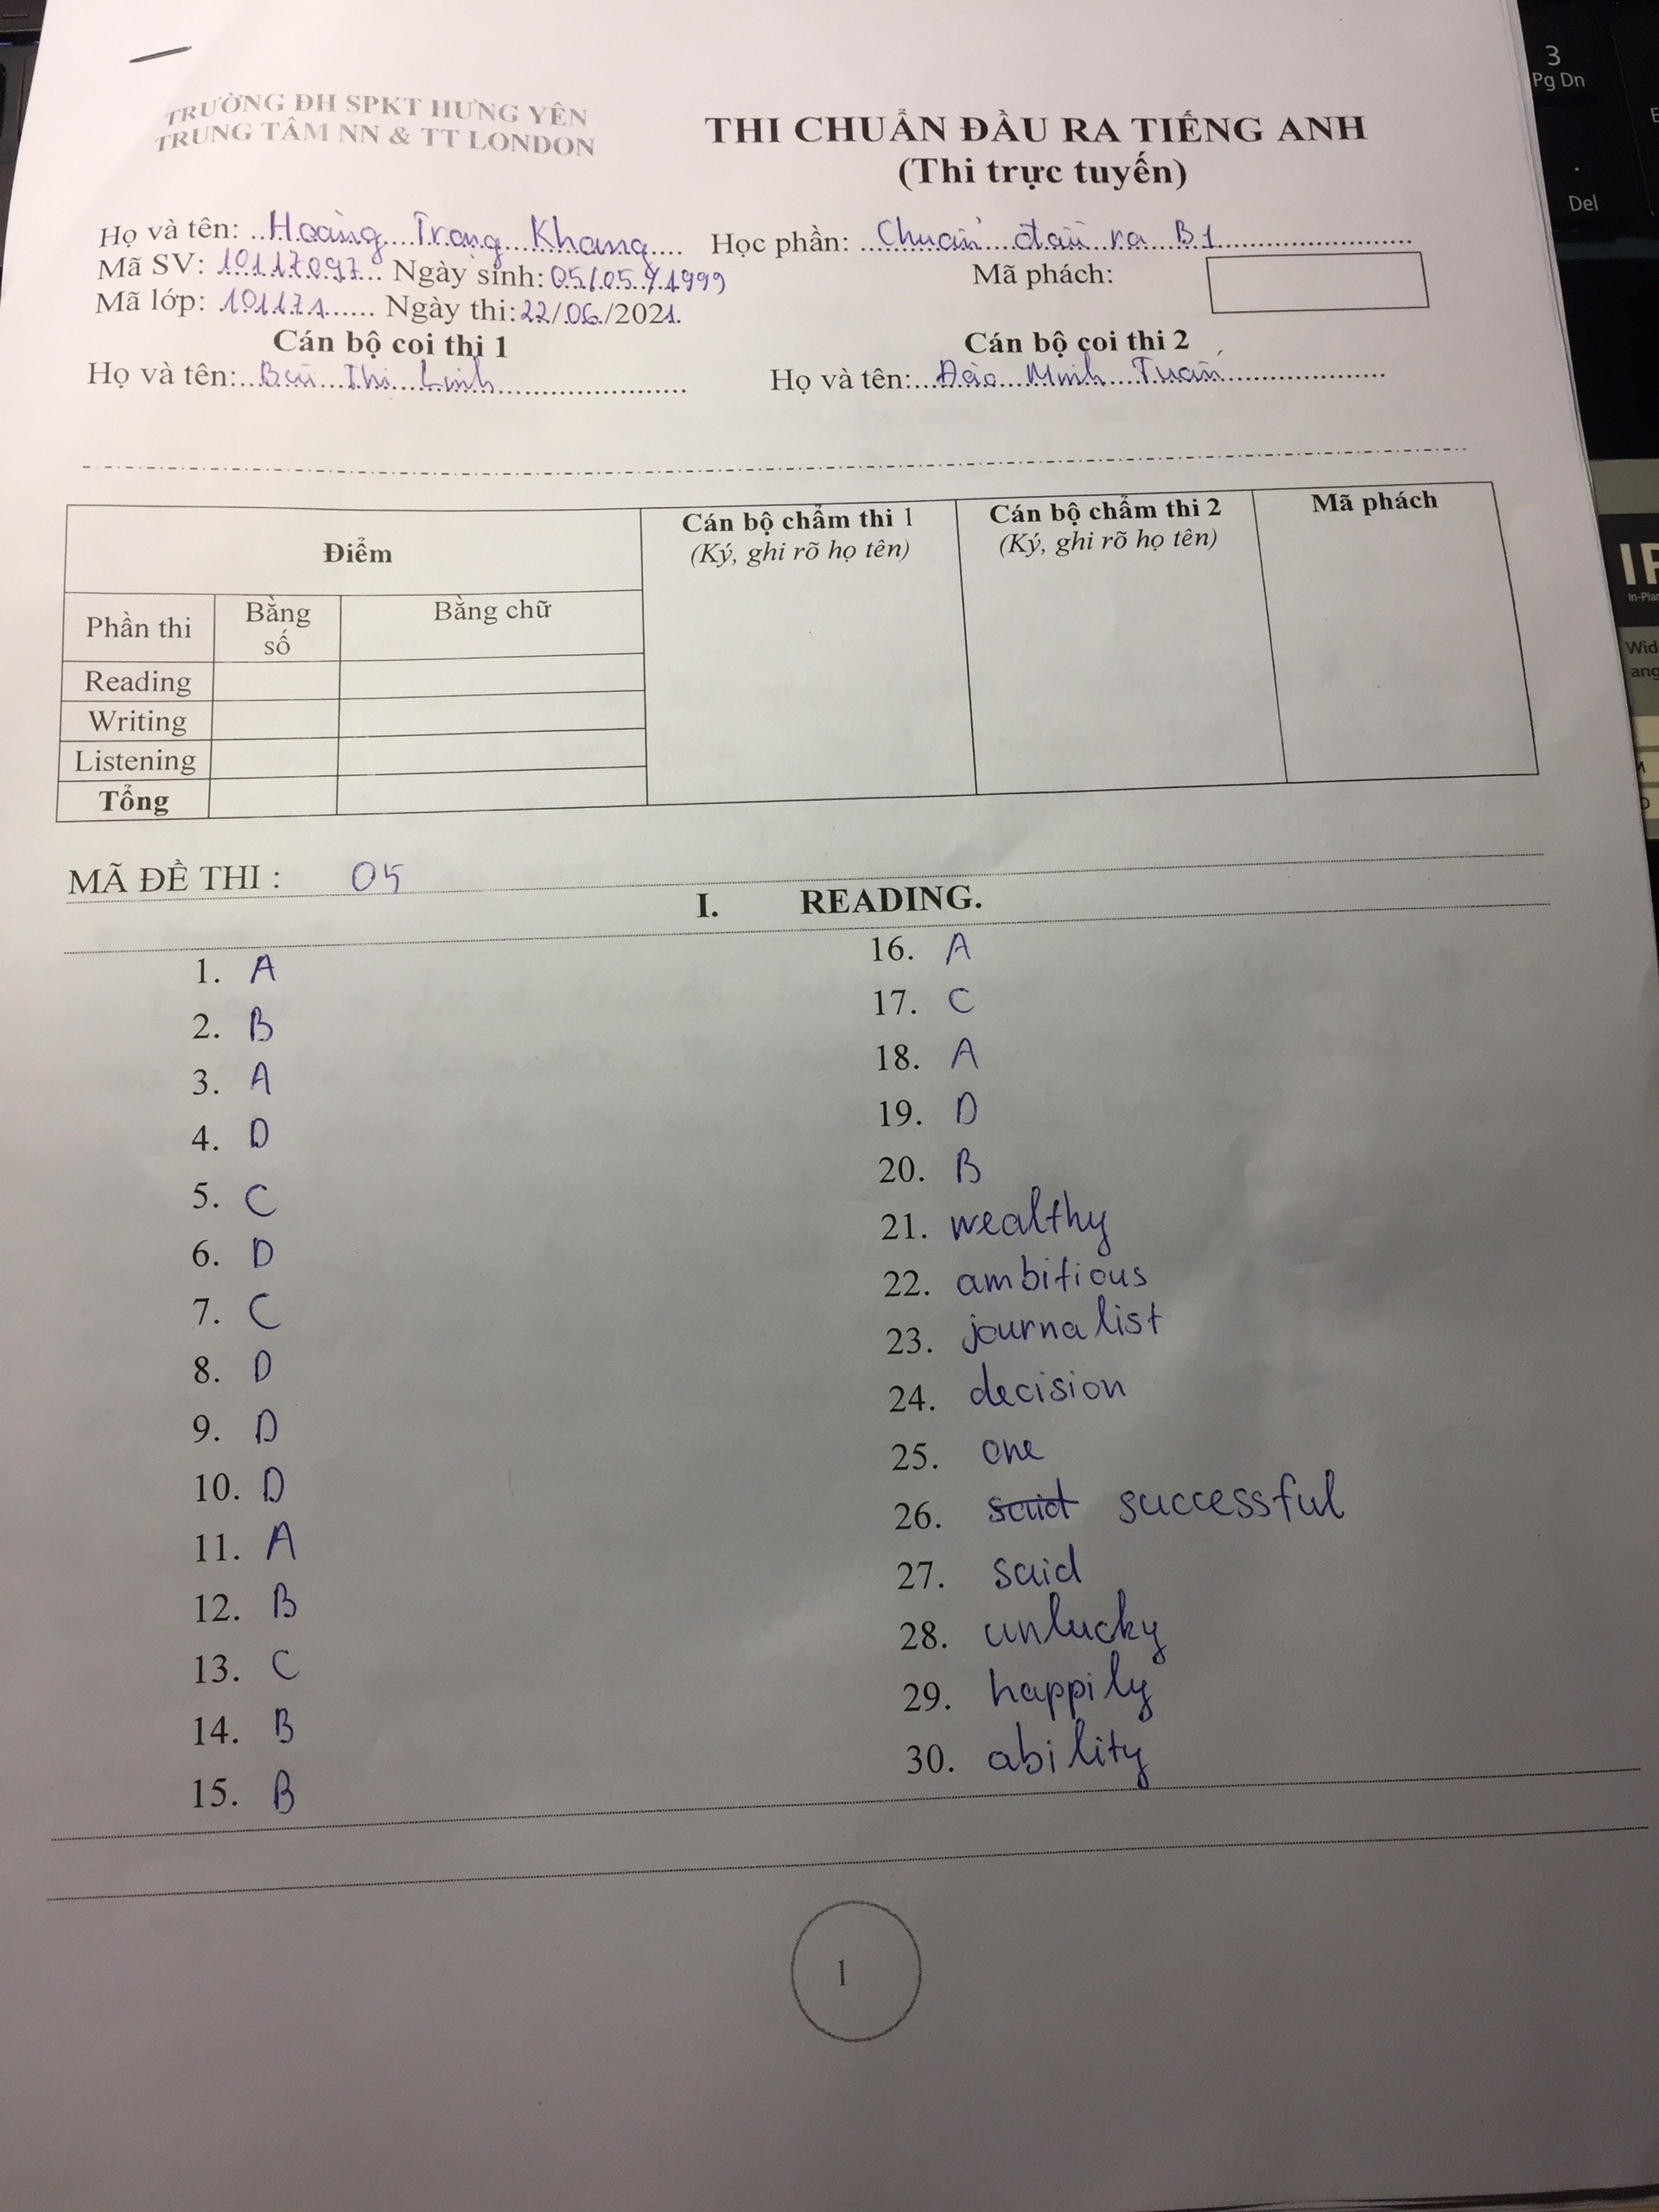 TRƯỜNG ĐH SPKT HƯNG YÊN
TRUNG TÂM NN & TT LONDON
THI CHUẨN ĐẦU RA TIẾNG ANH
(Thi trực tuyến)
Họ và tên: Hoàng Trọng Khang Học phần: Chuẩn đầu ra B1
Mã SV: 10117097 Ngày sinh: 05/05/1999 Mã phách:
Mã lớp: 101171 Ngày thi: 22/06/2021.
Cán bộ coi thi 1 Cán bộ coi thi 2
Họ và tên: Bùi Thị Linh Họ và tên: Đào Minh Tuấn
Điểm
Cán bộ chấm thi 1
(Ký, ghi rõ họ tên)
Cán bộ chấm thi 2
(Ký, ghi rõ họ tên)
Mã phách
Phần thi
Bằng số
Bằng chữ
Reading
Writing
Listening
Tổng
MÃ ĐỀ THI : 05
I. READING.
1. A
2. B
3. A
4. D
5. C
6. D
7. C
8. D
9. D
10. D
11. A
12. B
13. C
14. B
15. B
16. A
17. C
18. A
19. D
20. B
21. wealthy
22. ambitious
23. journalist
24. decision
25. one
26. said successful
27. said
28. unlucky
29. happily
30. ability
1
3
Pg Dn
.
Del
In-Plan
Wid
ang